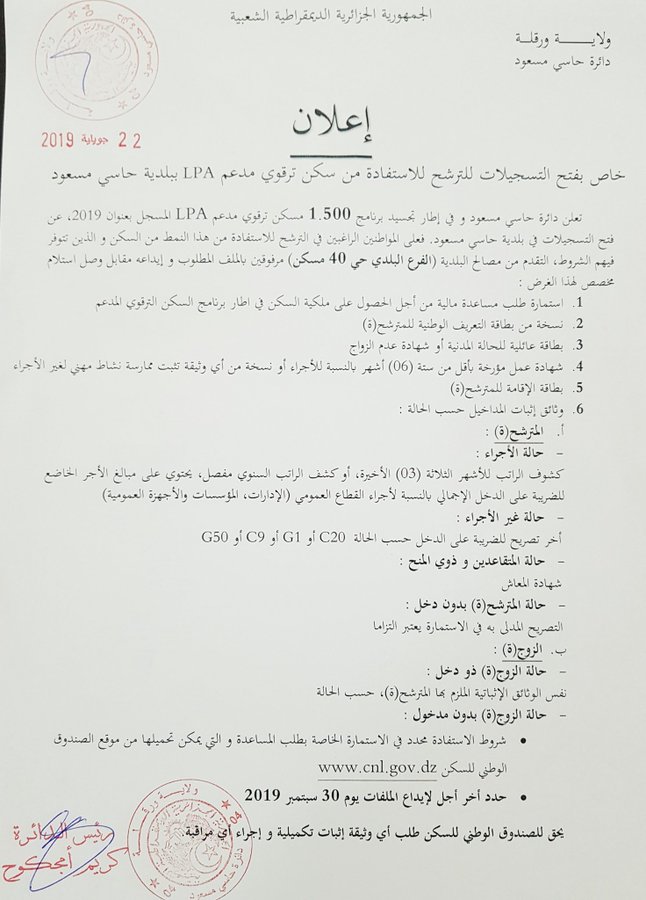 الجمهورية الجزائرية الديمقراطية الشعبية
ولايـــــة ورقلـة
دائرة حاسي مسعود
22 جويلية 2019
إعلان
خاص بفتح التسجيلات للترشح للاستفادة من سكن ترقوي مدعم LPA ببلدية حاسي مسعود
تعلن دائرة حاسي مسعود و في إطار تجسيد برنامج 1.500 مسكن ترقوي مدعم LPA المسجل بعنوان 2019، عن
فتح التسجيلات في بلدية حاسي مسعود. فعلى المواطنين الراغبين في الترشح للاستفادة من هذا النمط من السكن و الذين تتوفر
فيهم الشروط، التقدم من مصالح البلدية (الفرع البلدي حي 40 مسكن) مرفوقين بالملف المطلوب و إيداعه مقابل وصل استلام
مخصص لهذا الغرض :
1. استمارة طلب مساعدة مالية من أجل الحصول على ملكية السكن في اطار برنامج السكن الترقوي المدعم
2. نسخة من بطاقة التعريف الوطنية للمترشح(ة)
3. بطاقة عائلية للحالة المدنية أو شهادة عدم الزواج
4. شهادة عمل مؤرخة بأقل من ستة (06) أشهر بالنسبة للأجراء أو نسخة من أي وثيقة تثبت ممارسة نشاط مهني لغير الأجراء
5. بطاقة الإقامة للمترشح(ة)
6. وثائق إثبات المداخيل حسب الحالة :
أ. المترشح(ة) :
- حالة الأجراء :
كشوف الراتب للأشهر الثلاثة (03) الأخيرة، أو كشف الراتب السنوي مفصل، يحتوي على مبالغ الأجر الخاضع
للضريبة على الدخل الإجمالي بالنسبة لأجراء القطاع العمومي (الإدارات، المؤسسات والأجهزة العمومية)
- حالة غير الأجراء :
أخر تصريح للضريبة على الدخل حسب الحالة C20 أو G1 أو C9 أو G50
- حالة المتقاعدين و ذوي المنح :
شهادة المعاش
- حالة المترشح(ة) بدون دخل :
التصريح المدلى به في الاستمارة يعتبر التزاما
ب. الزوج(ة) :
- حالة الزوج(ة) ذو دخل :
نفس الوثائق الإثباتية الملزم بها المترشح(ة)، حسب الحالة
- حالة الزوج(ة) بدون مدخول :
• شروط الاستفادة محدد في الاستمارة الخاصة بطلب المساعدة و التي يمكن تحميلها من موقع الصندوق
الوطني للسكن www.cnl.gov.dz
• حدد أخر أجل لإيداع الملفات يوم 30 سبتمبر 2019
يحق للصندوق الوطني للسكن طلب أي وثيقة إثبات تكميلية و إجراء أي مراقبة.
رئيس الدائرة
كريم أمجكوح